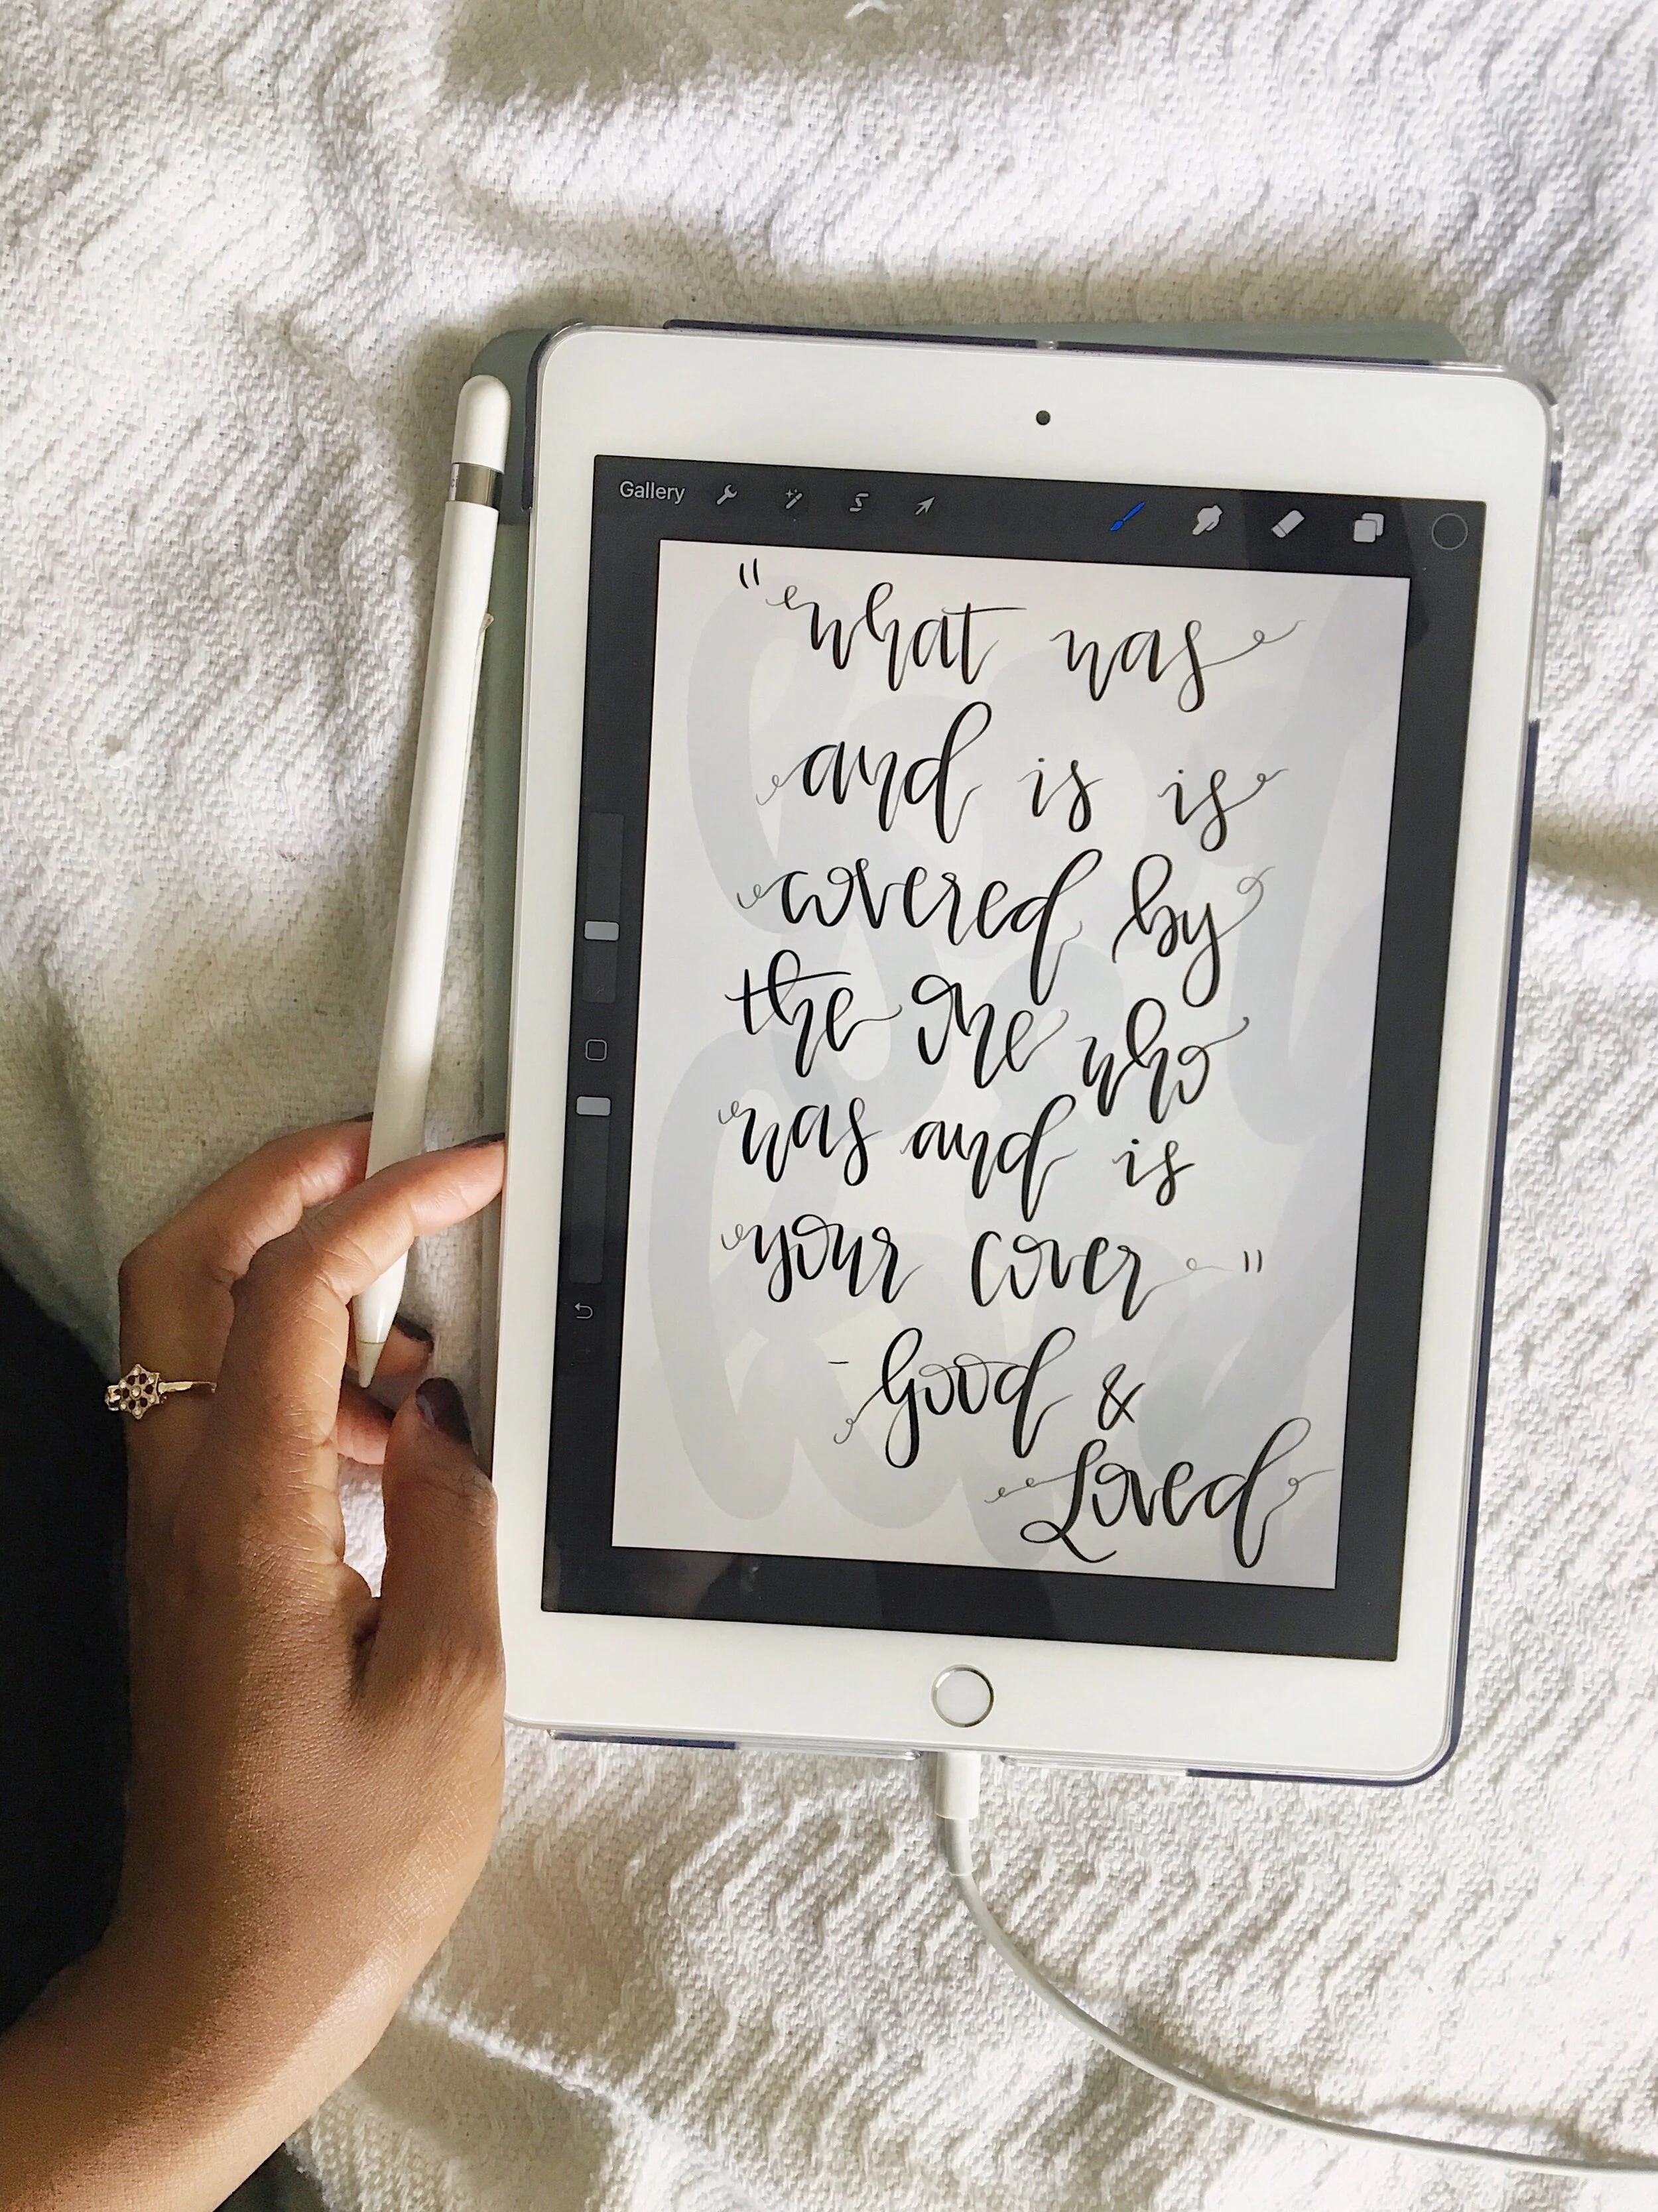 Gallery
"what was
and is is
covered by
the one who
was and is
your cover"
- Good &
Loved